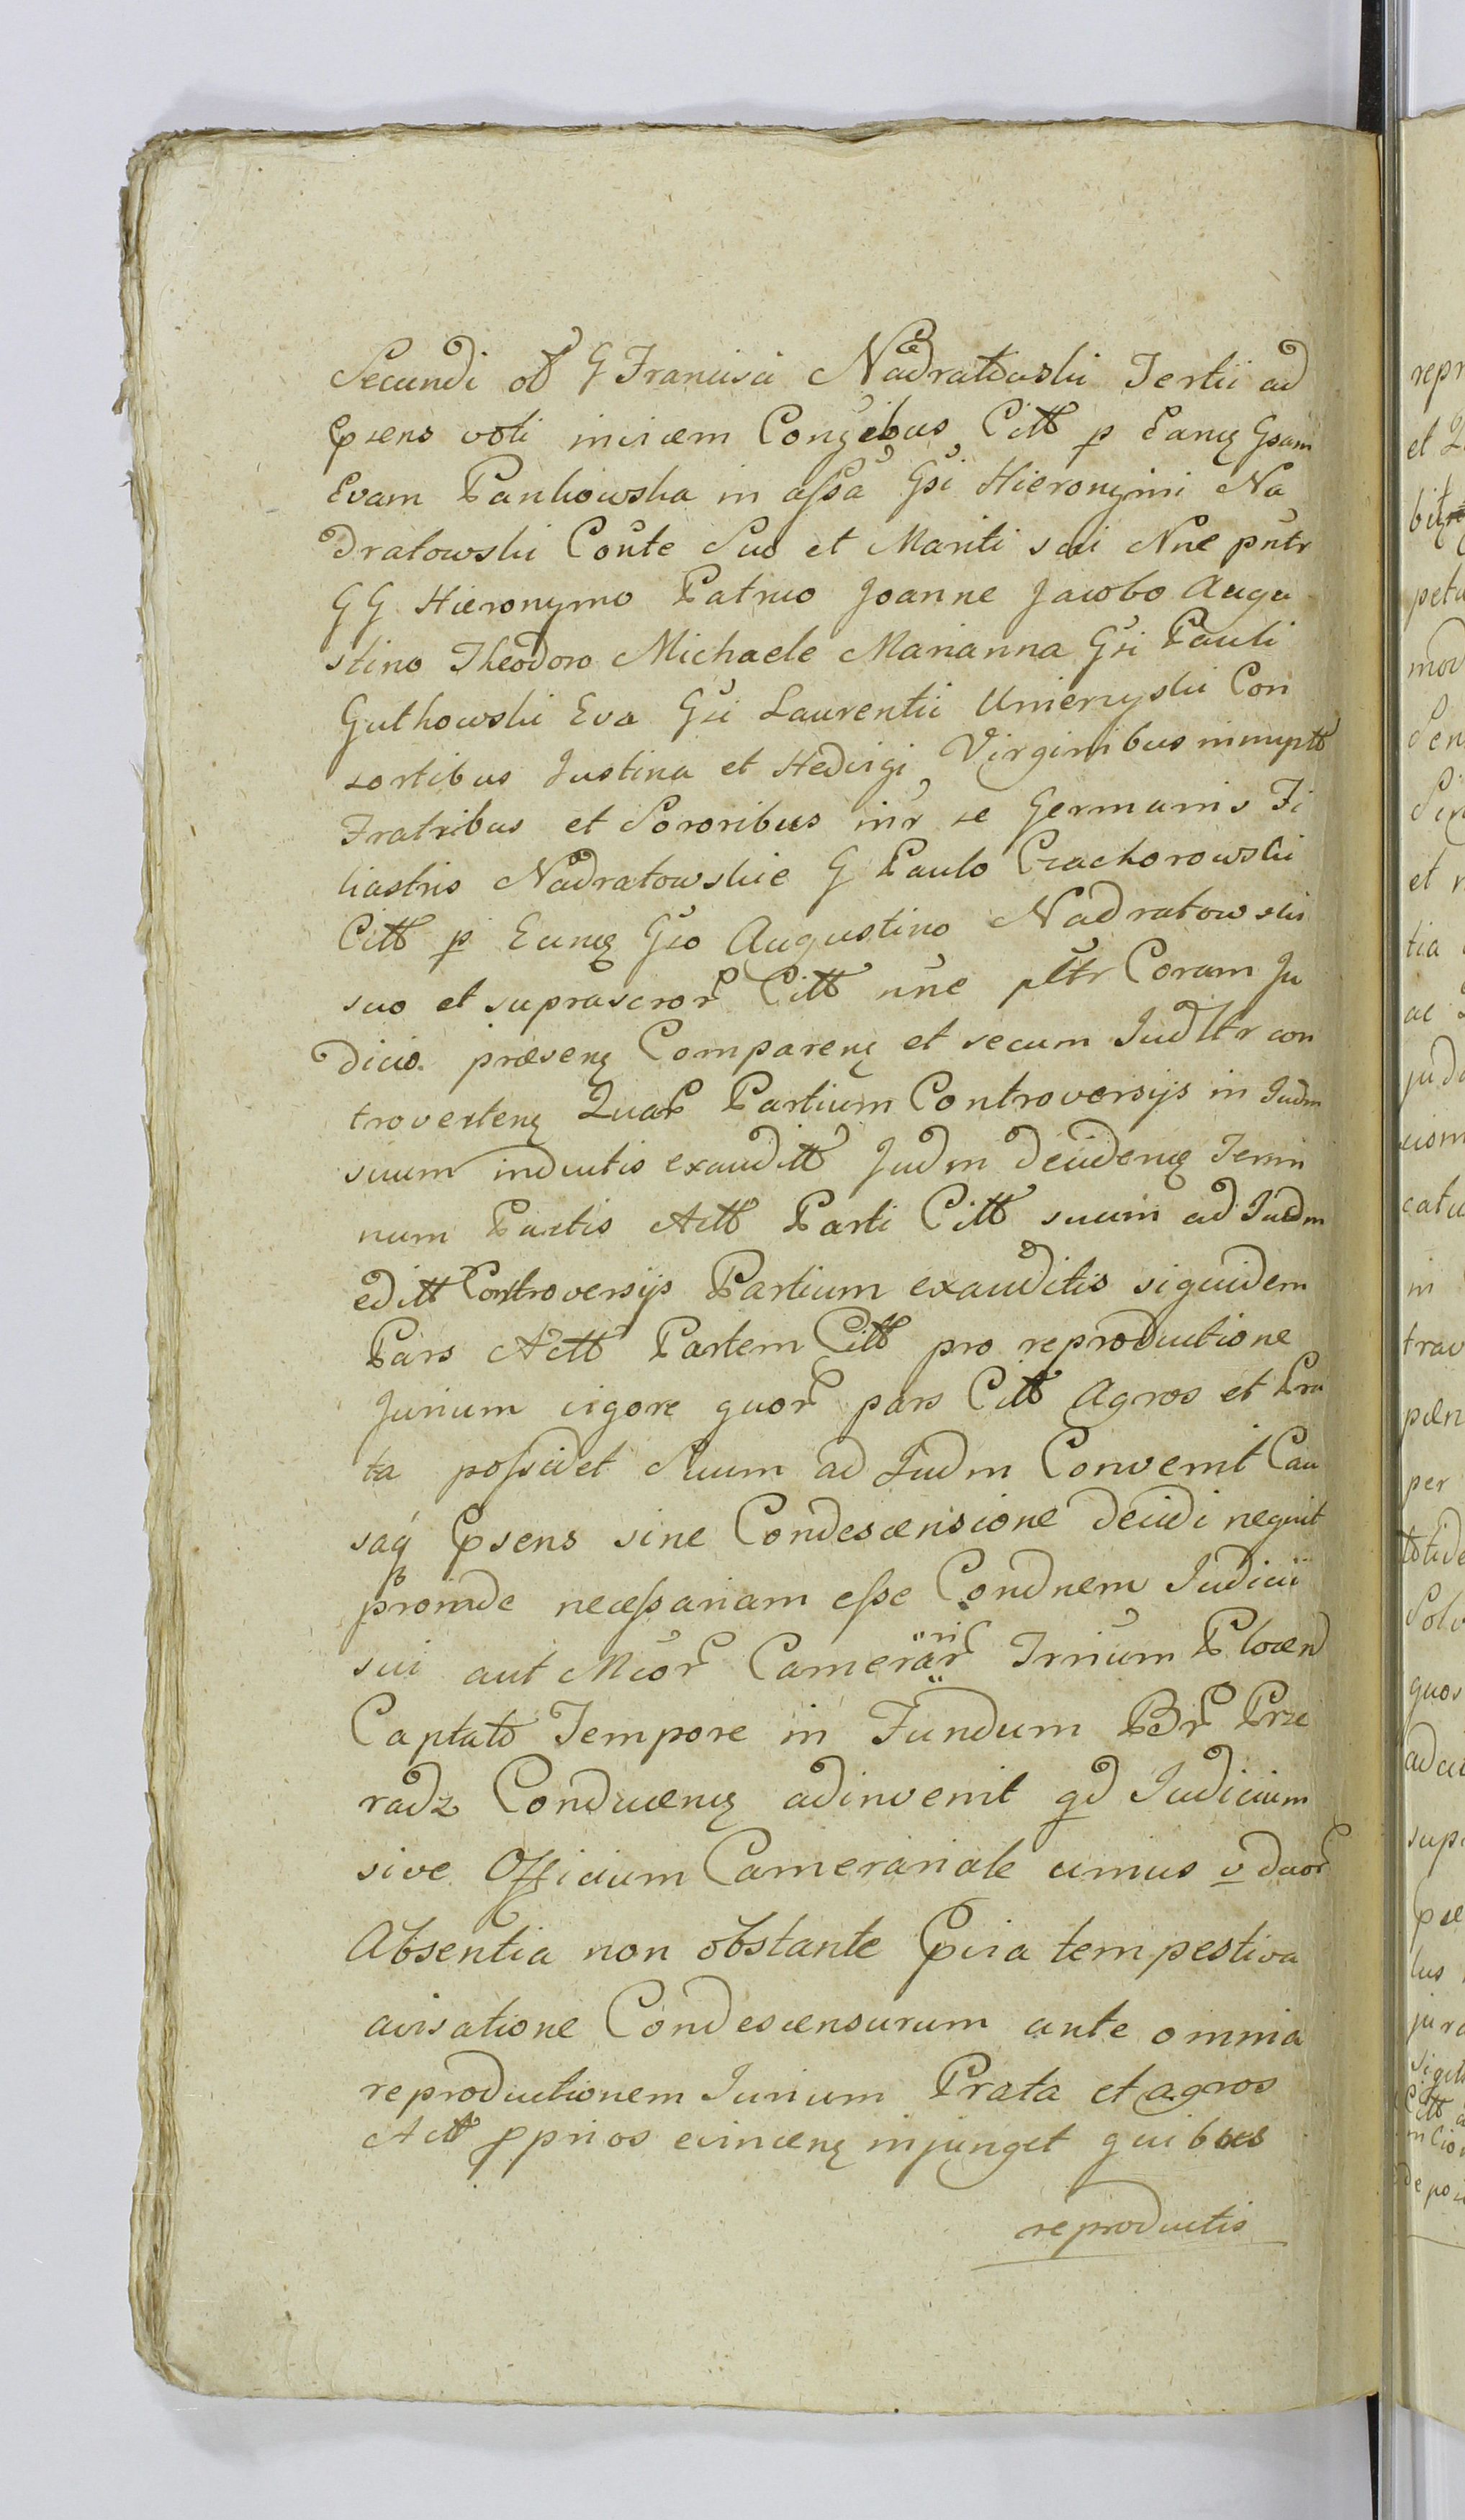 Secundi ob G Francisci Nadratowski Tertii ad
Epsens voti invicem Conjẽbus Citt p Eanq Gsam
Evam Pankowska in assã Gsi Hieronymi Na
dratowski Coñte Suo et Mariti sui Nñe pñtr
GG Hieronymo Patruo Joanne Jacobo Augu
stino Theodoro Michaele Marianna Gsi Pauli
Gutkowski Eva Gsi Laurentii Umierzyski Con
sortibus Justina et Hedvigi Virginibus innuptt
Fratribus et Sororibus inr se Germanis Fi
liastris Nadratowskie G Paulo Czachorowski
Citt p Eunq Gso Augustino Nadratowski
suo et suprascror Citt nñe pltr Coram Ju
dicio praesenq Comparenq et secum Judltr con
trovertenq Quar Partium Controversijs in Judm
suum inductis exauditt Judm decidenq Termi
num Partis Actt Parti Citt suum ad Judm
editt Controversijs Partium exauditis siquidem
Pars Actt Partem Citt pro reproductione
Jurium vigore quor pars Citt Agros et Pra
ta possidet Suum ad Judm Convenit Cau
saq Epsens sine Condescensione decidi nequit
proinde necessariam esse Condnem Judicii
sui aut Mcor Camerar Trrium Plocen
Captato Tempore in Fundum Br Prze
radz Conducenq adinvenit qd Judicium
sive Officium Camerariale unius v duor
Absentia non obstante Epvia tempestiva
avisatione Condescensurum ante omnia
reproductionem Jurium Prata et agros
Actt pprios evincenq injunget quibus
reproductis